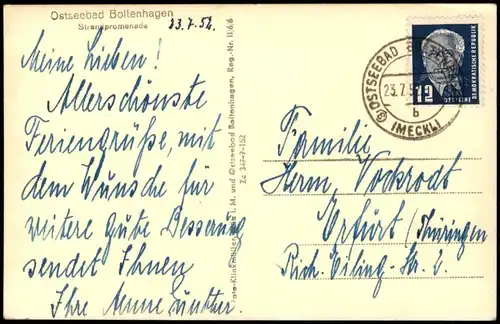 Ostseebad Boltenhagen
Strandpromenade
23.7.52.
Meine Lieben!
Allerschönste
Feriengrüße, mit
dem Wunsche für
weitere gute Besserung
sendet Ihnen
Ihre Anne
II/6/6
Klinkmüller, i. M. und Ostseebad Boltenhagen, Reg.-Nr.
OSTSEEBAD
23.7.5
b
(MECKL)
12
DEUTSCHE
DEMOKRATISCHE REPUBLIK
Familie
Herm. Vockrodt
Erfurt / Thüringen
Rich.-Eiling-Str. 2.